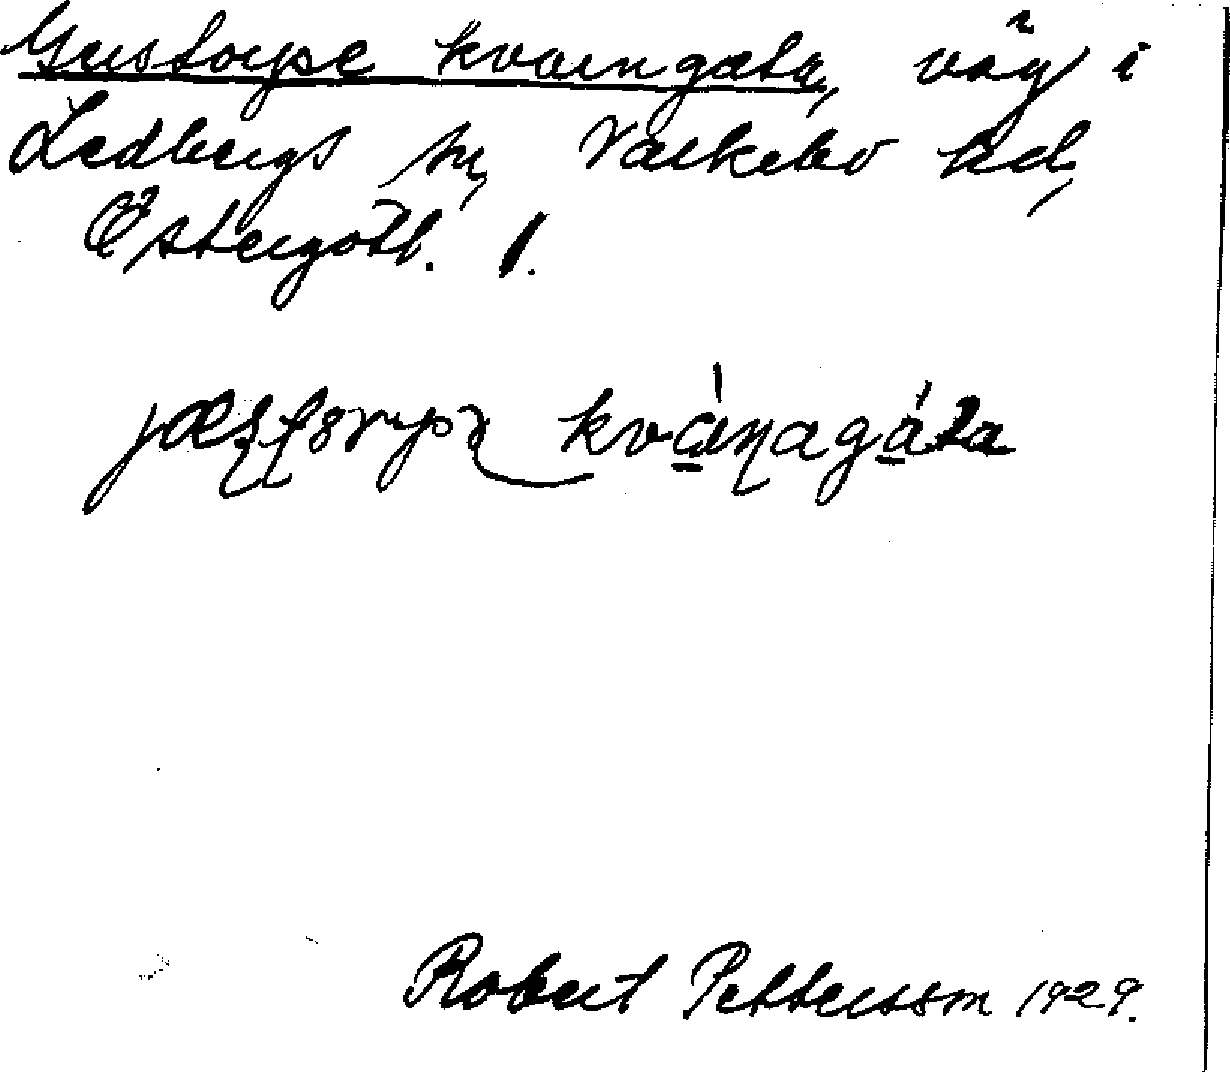 Gerstorpe kvarngata, väg i
Ledbergs sn, Valkebo hd,
Östergötl. l.
kvànagáta
Robert Pettersson 1929.